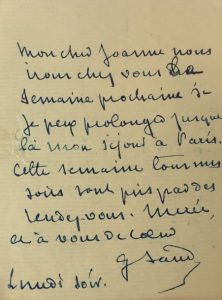 Mon cher Joanne nous
irons chez vous la
semaine prochaine si
je peux prolonger jusque
là mon séjour à Paris.
Cette semaine tous mes
soirs sont pris par des
rendez-vous. Merci,
et à vous de cœur
G Sand
Lundi soir.